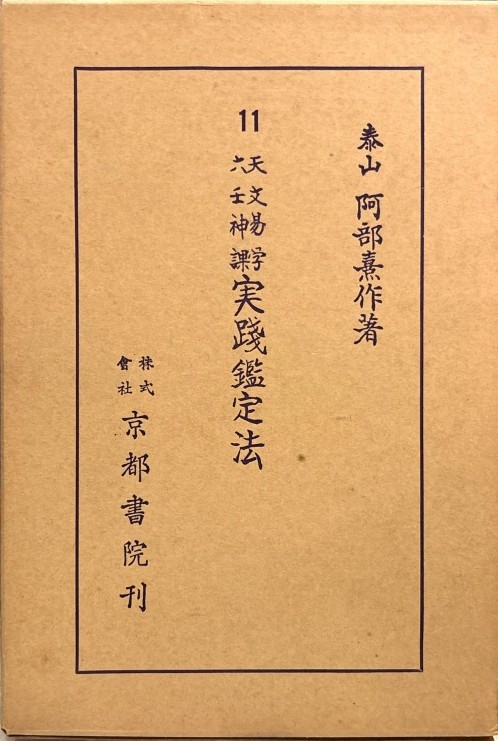 泰山 阿部熹作著
11
天文易学
六壬神課
実践鑑定法
株式
會社
京都書院刊